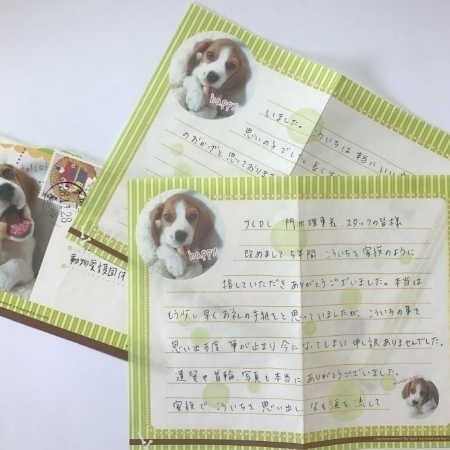 happy
いました。
思い
のおかげと思っておりま
28
動物愛護団体
happy
理事長 スタッフの皆様
改めまして 5年間 こういちを家族のように
接していただき ありがとうございました。本当は
もう少し早くお礼の手紙をと思っていましたが、こういちの事を
思い出す度 筆が止まり 今になってしまい 申し訳ありませんでした。
遺骨や首輪、写真も本当に ありがとうございました。
家族で こういちを思い出し 涙を流して